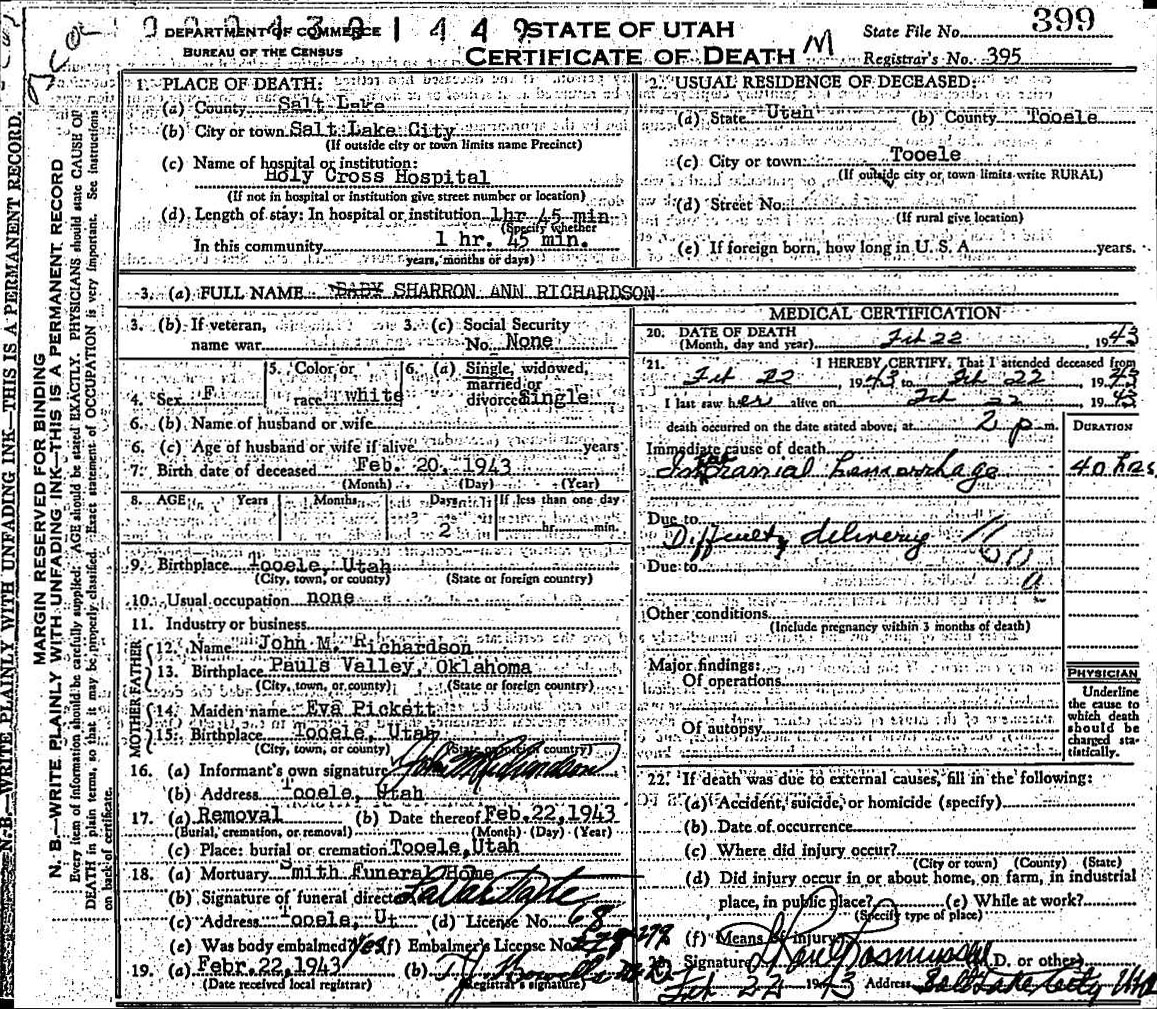 DEPARTMENT OF COMMERCE
BUREAU OF THE CENSUS
1 4 4 9
STATE OF UTAH
CERTIFICATE OF DEATH M
State File No. 399
Registrar's No. 395
N. B.—WRITE PLAINLY WITH UNFADING INK—THIS IS A PERMANENT RECORD.
MARGIN RESERVED FOR BINDING
N. B.—WRITE PLAINLY WITH UNFADING INK—THIS IS A PERMANENT RECORD
Every item of information should be carefully supplied. AGE should be stated EXACTLY. PHYSICIANS should state CAUSE OF
DEATH in plain terms, so that it may be properly classified. Exact statement of OCCUPATION is very important. See instructions
on back of certificate.
1. PLACE OF DEATH:
(a) County Salt Lake
(b) City or town Salt Lake City
(If outside city or town limits name Precinct)
(c) Name of hospital or institution:
Holy Cross Hospital
(If not in hospital or institution give street number or location)
(d) Length of stay: In hospital or institution 1hr 45 min
(Specify whether
In this community 1 hr. 45 min.
years, months or days)
2. USUAL RESIDENCE OF DECEASED:
(a) State Utah (b) County Tooele
(c) City or town Tooele
(If outside city or town limits write RURAL)
(d) Street No.
(If rural give location)
(e) If foreign born, how long in U. S. A. years.
3. (a) FULL NAME BABY SHARRON ANN RICHARDSON
3. (b) If veteran, name war 3. (c) Social Security No. None
4. Sex F 5. Color or race white 6. (a) Single, widowed, married or divorced Single
6. (b) Name of husband or wife
6. (c) Age of husband or wife if alive years
7. Birth date of deceased Feb. 20, 1943
(Month) (Day) (Year)
8. AGE Years Months Days If less than one day
2 hr. min.
9. Birthplace Tooele, Utah
(City, town, or county) (State or foreign country)
10. Usual occupation none
11. Industry or business
FATHER
12. Name John M. Richardson
13. Birthplace Pauls Valley, Oklahoma
(City, town, or county) (State or foreign country)
MOTHER
14. Maiden name Eva Pickett
15. Birthplace Tooele, Utah
(City, town, or county) (State or foreign country)
16. (a) Informant's own signature John M Richardson
(b) Address Tooele, Utah
17. (a) Removal (b) Date thereof Feb.22,1943
(Burial, cremation, or removal) (Month) (Day) (Year)
(c) Place: burial or cremation Tooele, Utah
18. (a) Mortuary Smith Funeral Home
(b) Signature of funeral director
(c) Address Tooele, Ut (d) License No. 68
(e) Was body embalmed? Yes (f) Embalmer's License No. 279
19. (a) Febr.22,1943 (b)
(Date received local registrar) (Registrar's signature)
MEDICAL CERTIFICATION
20. DATE OF DEATH
(Month, day and year) Feb 22, 1943
21. I HEREBY CERTIFY, That I attended deceased from
Feb 22, 1943 to Feb 22, 1943
I last saw her alive on Feb 22, 1943
death occurred on the date stated above, at 2 p m.
DURATION
Immediate cause of death
Intracranial hemorrhage 40 hrs
Due to
Difficulty delivering
Due to
Other conditions
(Include pregnancy within 3 months of death)
Major findings:
Of operations
Of autopsy
PHYSICIAN
Underline
the cause to
which death
should be
charged sta-
tistically.
22. If death was due to external causes, fill in the following:
(a) Accident, suicide, or homicide (specify)
(b) Date of occurrence
(c) Where did injury occur?
(City or town) (County) (State)
(d) Did injury occur in or about home, on farm, in industrial
place, in public place? (e) While at work?
(Specify type of place)
(f) Means of injury
Signature Rasmussen (M.D. or other)
Feb 22 1943 Address Salt Lake City Utah